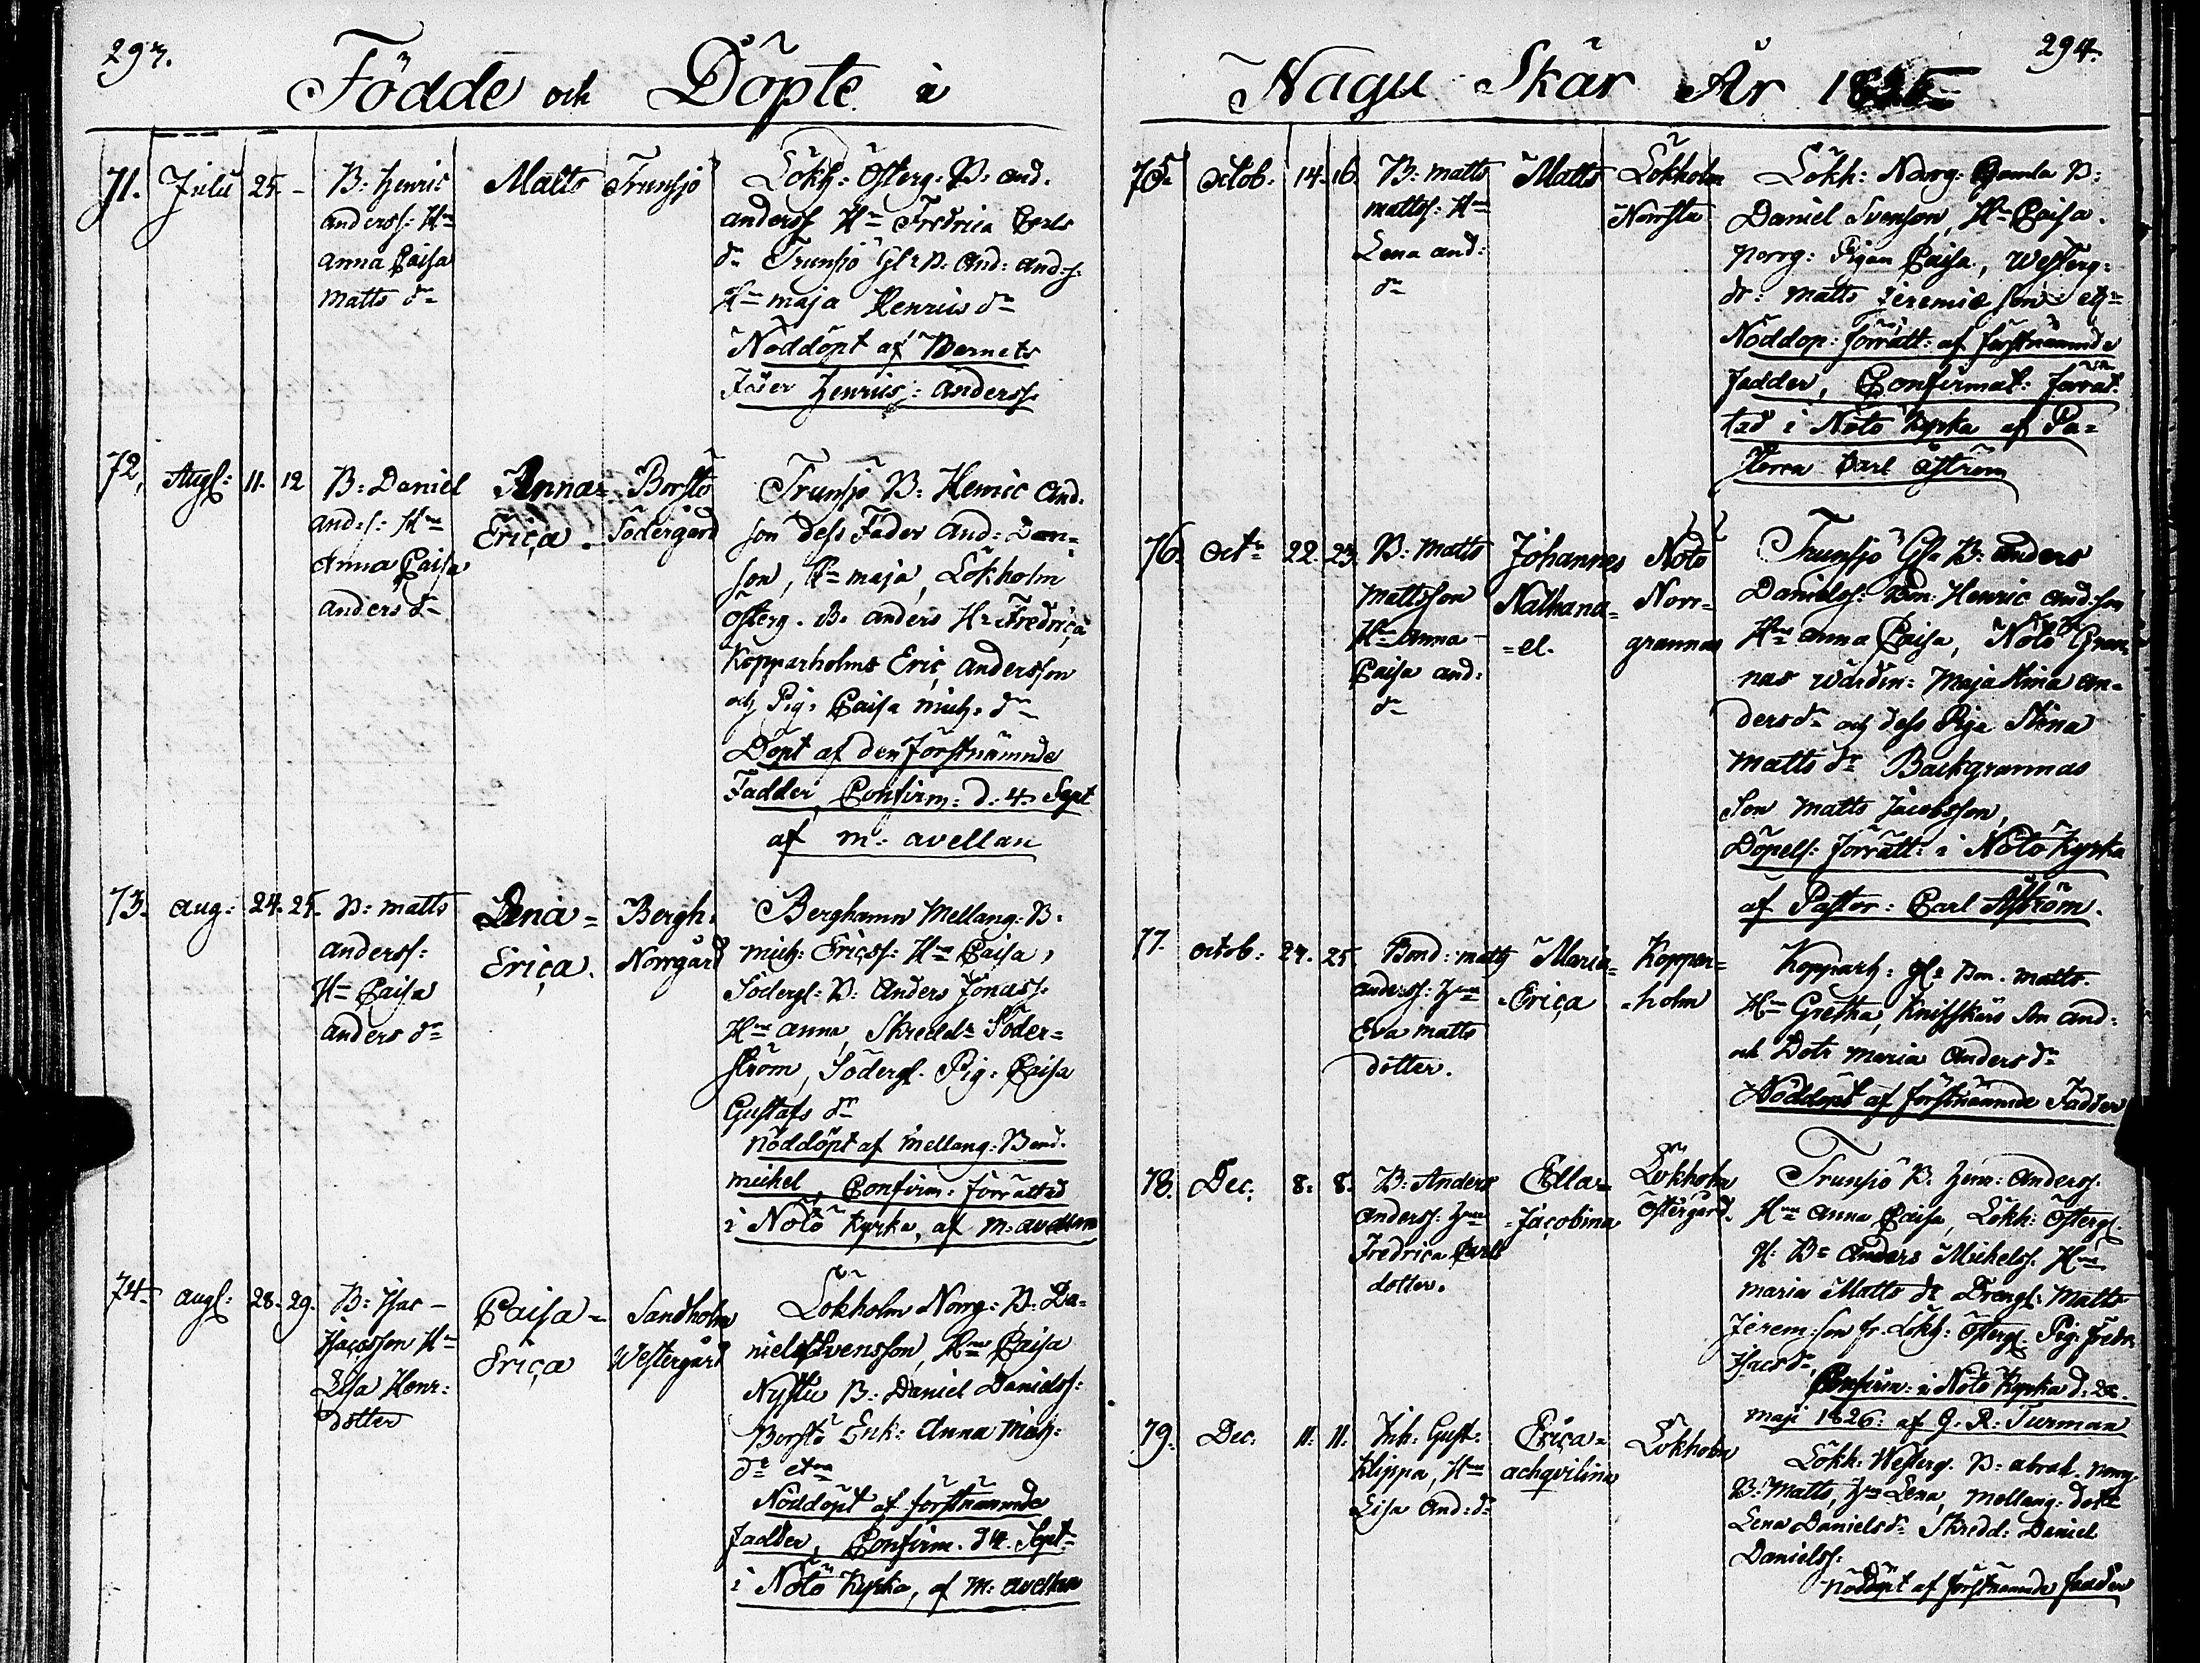 293.
Födde och Döpte i
71. Julii 25. - B: Henric Matts Trunsjö Lökh: Österg: B: And.
anderss: H:n anderss H:n Fredrica Carls
anna Caisa d:r Trunsjö Gl: B: And: And:s:
matts d:r H:n maja Henrics d:r
Nöddöpt af Barnets
Fader Henrics: anderss.
72, Augs: 11. 12 B: Daniel Anna= Borstö Trunsjö B: Henric And.
and:s: H:n Erica. Södergård son dess Fader And: Dan=
Anna Caisa son, H:n maja, Lökholm
anders d:r Österg. B: anders H:n Fredrica
Kopparholms Eric andersson
och Pig: Caisa mich: d:r
Döpt af den förstnämnde
Fadder, Confirm: d: 4 Sept
af m: avellan
73. aug: 24. 25. B: matts Lena= Bergh: Berghamn Mellang: B:
anderss: Erica. Norrgård mich: Ericss: H:n Caisa,
H:n Caisa Södergl: B: Anders Jonass:
anders d:r H:n anna, Skredd:r Söder=
ström, Södergl. Pig: Caisa
Gustafs d:r
nöddöpt af mellang: Bond.
michel, Confirm: förrättad
i Nötö Kyrka, af m: avellan
74. augs: 28. 29. B: Isac - Caisa= Sandholm Lökholm Norrg: B: Da=
Isacsson H:n Erica Westergård niel Svensson, H:n Caisa
Lisa Henr: Nystu B: Daniel Danielss:
dotter Borstö Enk: Anna Mich:
d:r etc
Nöddöpt af förstnämnde
fadder, Confirm. d 4. Sept=
i Nötö Kyrka, af M: avellan
294.
Nagu Skär År
75. Octob: 14. 16. B: matts Matts Lökholm Lökh: Norrg: Gamla B:
mattss: H:n Norrsta Daniel Svenson, H:n Caisa.
Lena and: Norrg: Pigan Caisa, Westerg=
d:r dr: matts Jeremiæ son etc
Nöddop: förrätt: af förstnämnde
fadder, Confirmat: förrät=
tad i Nötö Kyrka af Pa=
storn Carl Åström
76. Oct: 22. 23. B: Matts Johannes Nötö Trunsjö Gl: B: anders
Mattsson Nathana= Norr= Danielss: Bon: Henric and:son
H:n anna =el. grannas H:n anna Caisa, Nötö Gran=
Caisa and: nas wärdin: Maja Stina an=
d:r ders d:r och dess Piga Stina
Matts d:r Backgrannas
Son Matts Jacobsson,
Döpels: förrätt: i Nötö Kyrka
af Pastor: Carl Åström.
77. octob: 24. 25. Bond: matts Maria= Koppar= Kopparh: gl: Bon. matts.
anderss: H:n Erica =holm H:n Gretha, Knifskärs Son and:
Eva matts och Dotr maria anders d:r
dotter. Nöddöpt af förstnämnde Fadder
78. Dec: 8. 8. B: Anders Ella= Lökholm Trunsjö B: Henr: Anderss:
anderss: H:n Jacobina Östergård. H:n anna Caisa, Lökh: Östergl.
Fredrica Carls gl: B: Anders Michelss. H:n
dotter. maria Matts d:r Drengl: Matts
Jerem:son fr. Lökh: Östergl. Pig: Fredr:
Isacs d:r
Confirm: i Nötö Kyrka d:
maji 1826: af G. R: Turman
79. Dec. 11. 11. Inh: Gust: Erica= Lökholm Lökh: Westerg. B: abrah. Norrg.
Klippa, H:n achqvilina B: Matts, H:n Lena, Mellang: dott
Lisa And: d:r Lena Daniels d:r Skredd: Daniel
Danielss:
nöddöpt af förstnämnde fadder